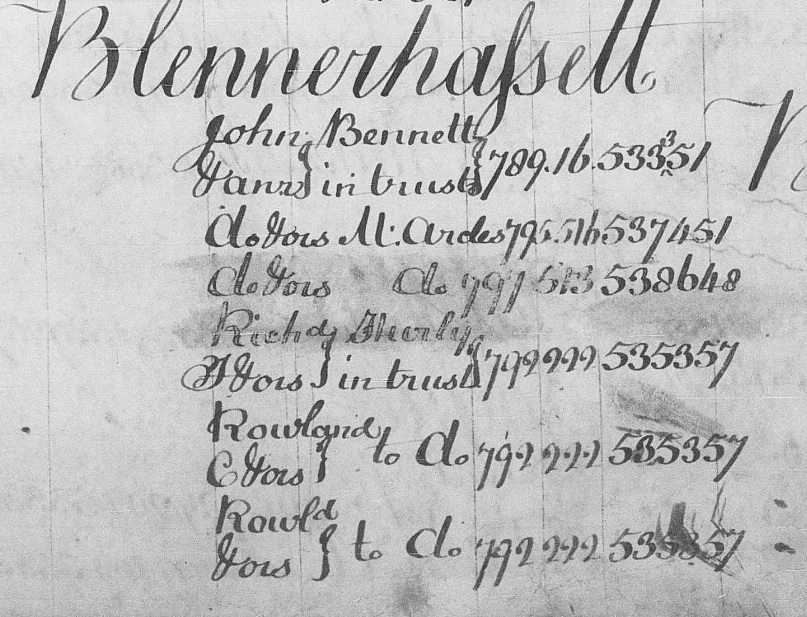 Blennerhassett
John Bennett
& anr } in trust } 789.16.533351
do & ors Mc. Ardes 795 516 537451
do & ors do 797 513 538648
Richd
& ors } in trust } 792 222 535357
Rowland
C & ors } to do 792 222 535357
Rowld
& ors } to do 792 222 535357